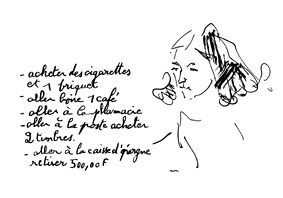 - acheter des cigarettes
et 1 briquet
- aller boire 1 café
- aller à la pharmacie
- aller à la poste acheter
2 timbres.
- aller à la caisse d'épargne
retirer 500,00F